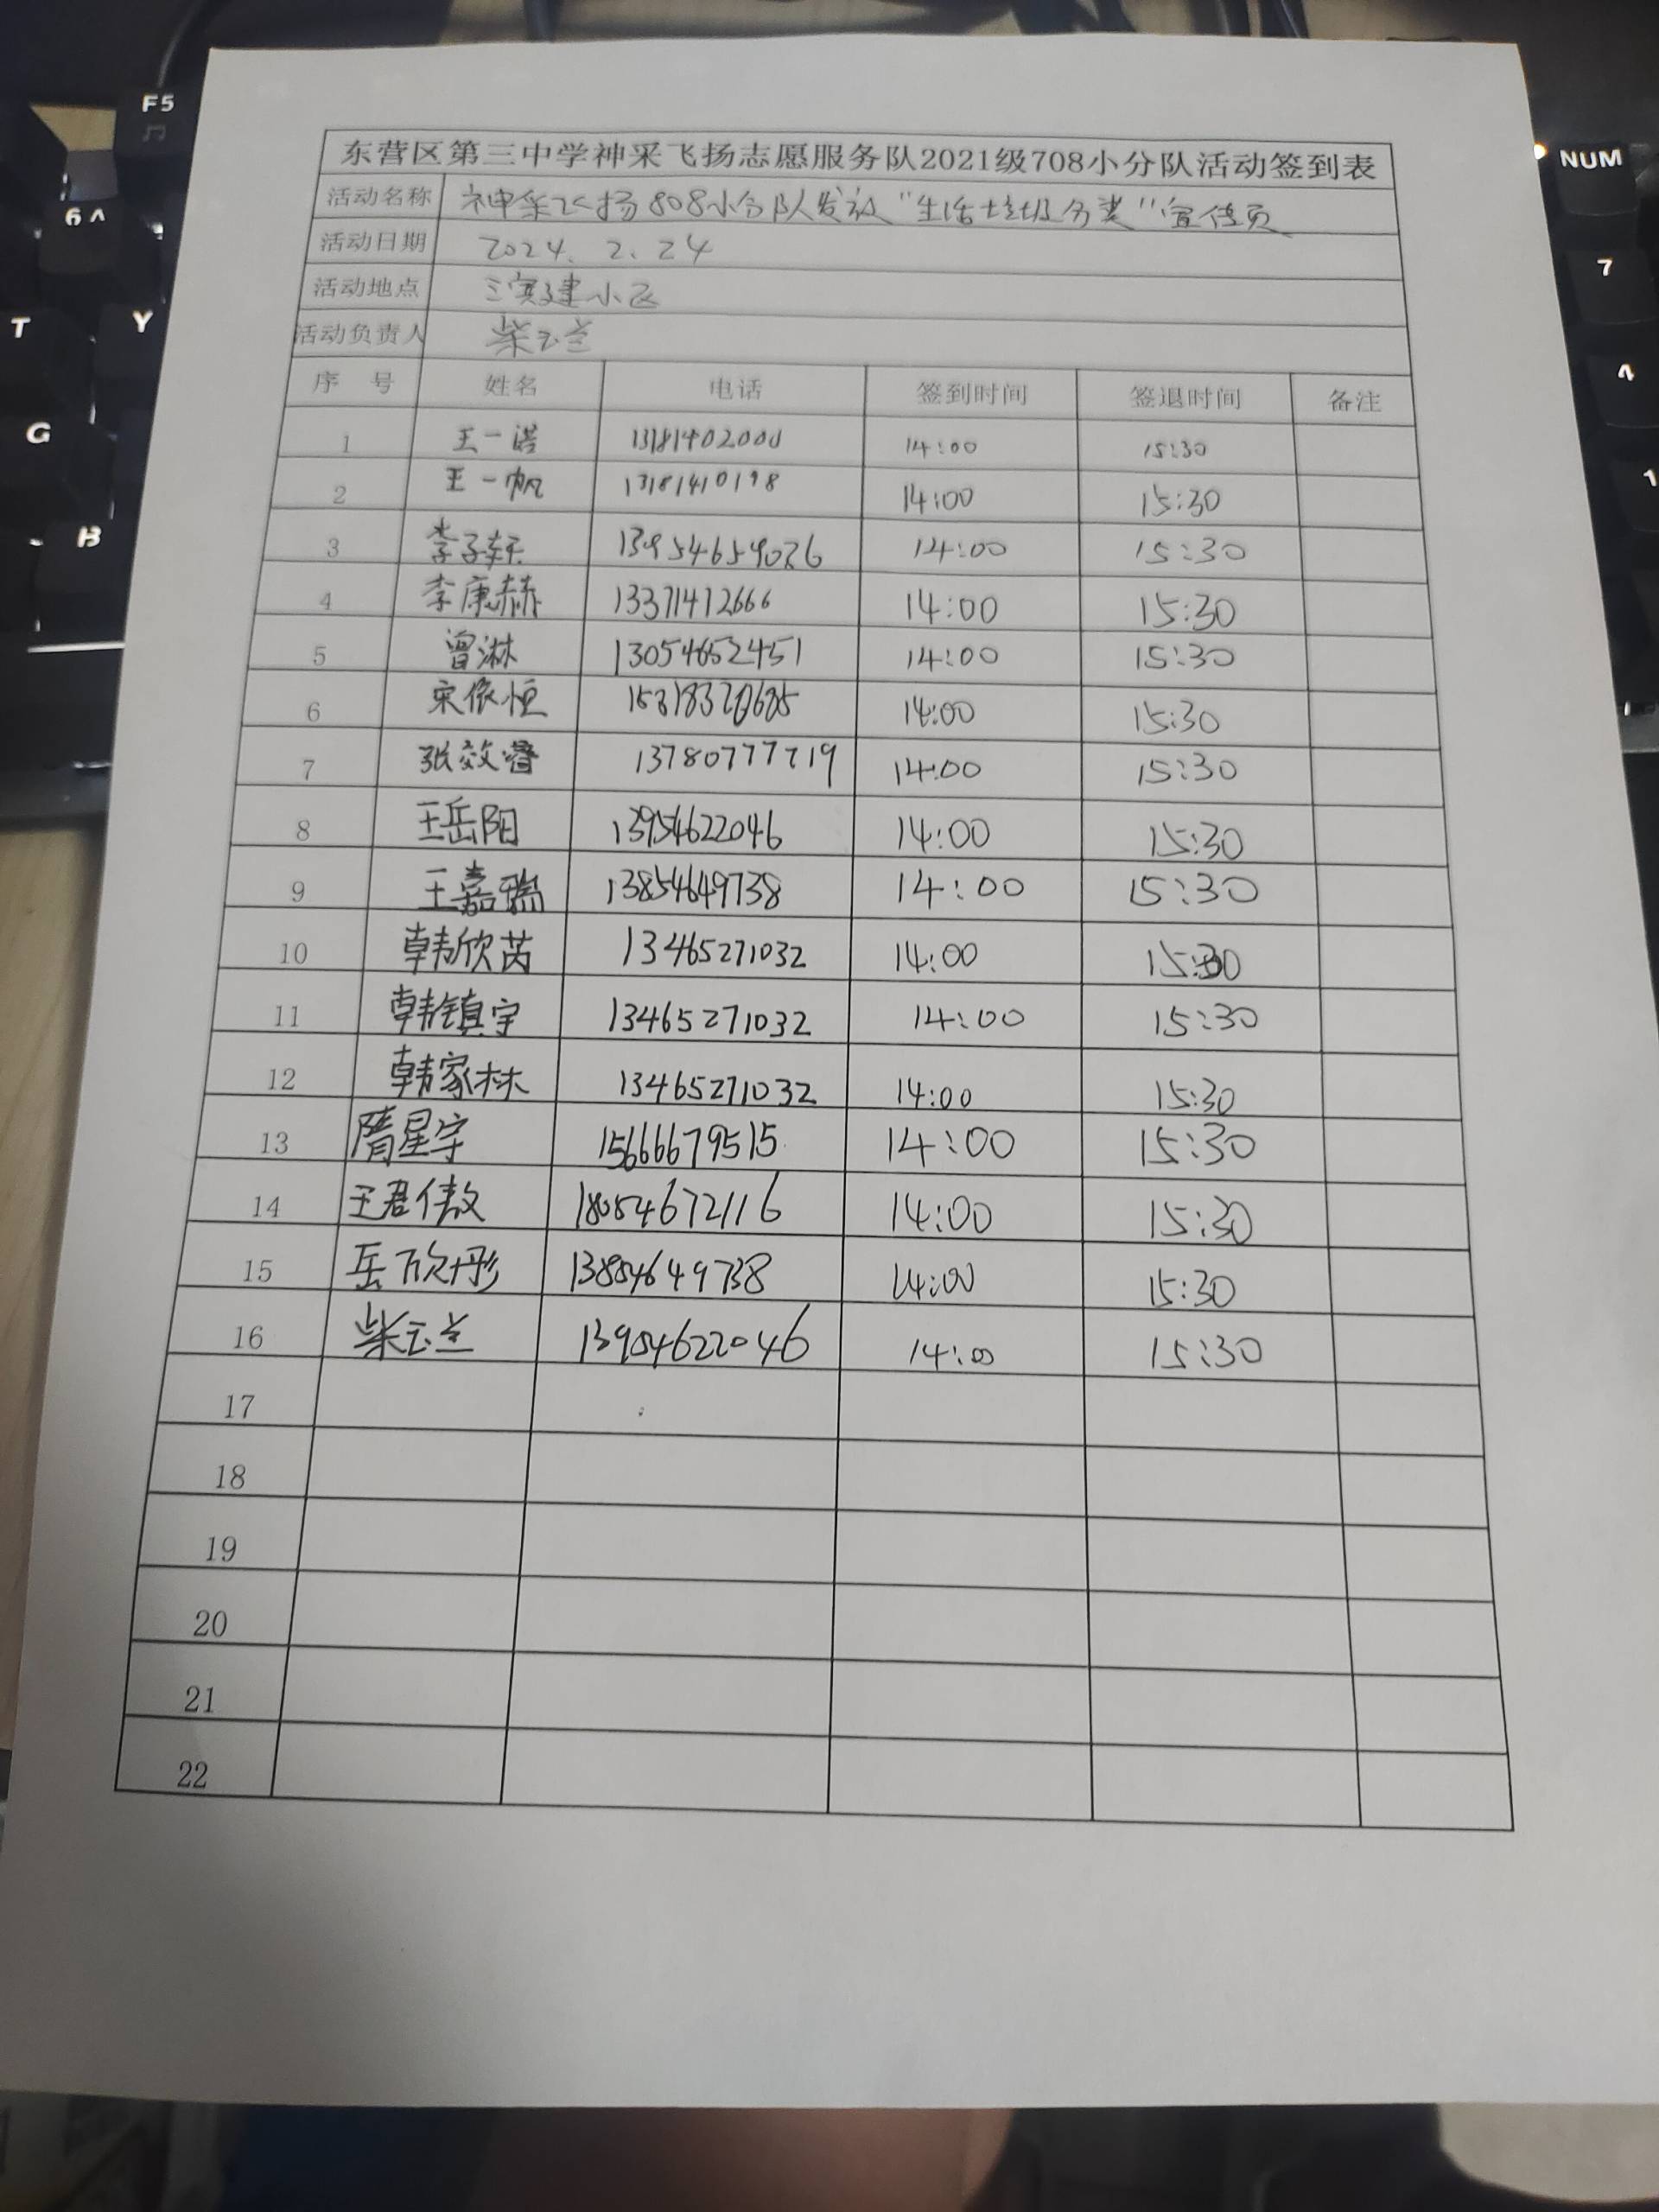 东营区第三中学神采飞扬志愿服务队2021级708小分队活动签到表
活动名称 神采飞扬808小分队发放"生活垃圾分类"宣传页
活动日期 2024. 2. 24
活动地点 三实建小区
活动负责人 柴玉兰
序 号 姓名 电话 签到时间 签退时间 备注
1 王一诺 13181402000 14:00 15:30
2 王一帆 13181410198 14:00 15:30
3 李子轩 13954659026 14:00 15:30
4 李康赫 13371412666 14:00 15:30
5 曾淋 13054652451 14:00 15:30
6 宋依恒 14:00 15:30
7 张效睿 13780777719 14:00 15:30
8 王岳阳 13954622046 14:00 15:30
9 王嘉瑞 13854649738 14:00 15:30
10 韩欣芮 13465271032 14:00 15:30
11 韩镇宇 13465271032 14:00 15:30
12 韩家林 13465271032 14:00 15:30
13 隋星宇 15666679515 14:00 15:30
14 王君傲 18054672116 14:00 15:30
15 岳欣彤 13854649738 14:00 15:30
16 柴玉兰 13954622046 14:00 15:30
17
18
19
20
21
22
F5
6 ^
T
Y
G
B
NUM
7
4
1